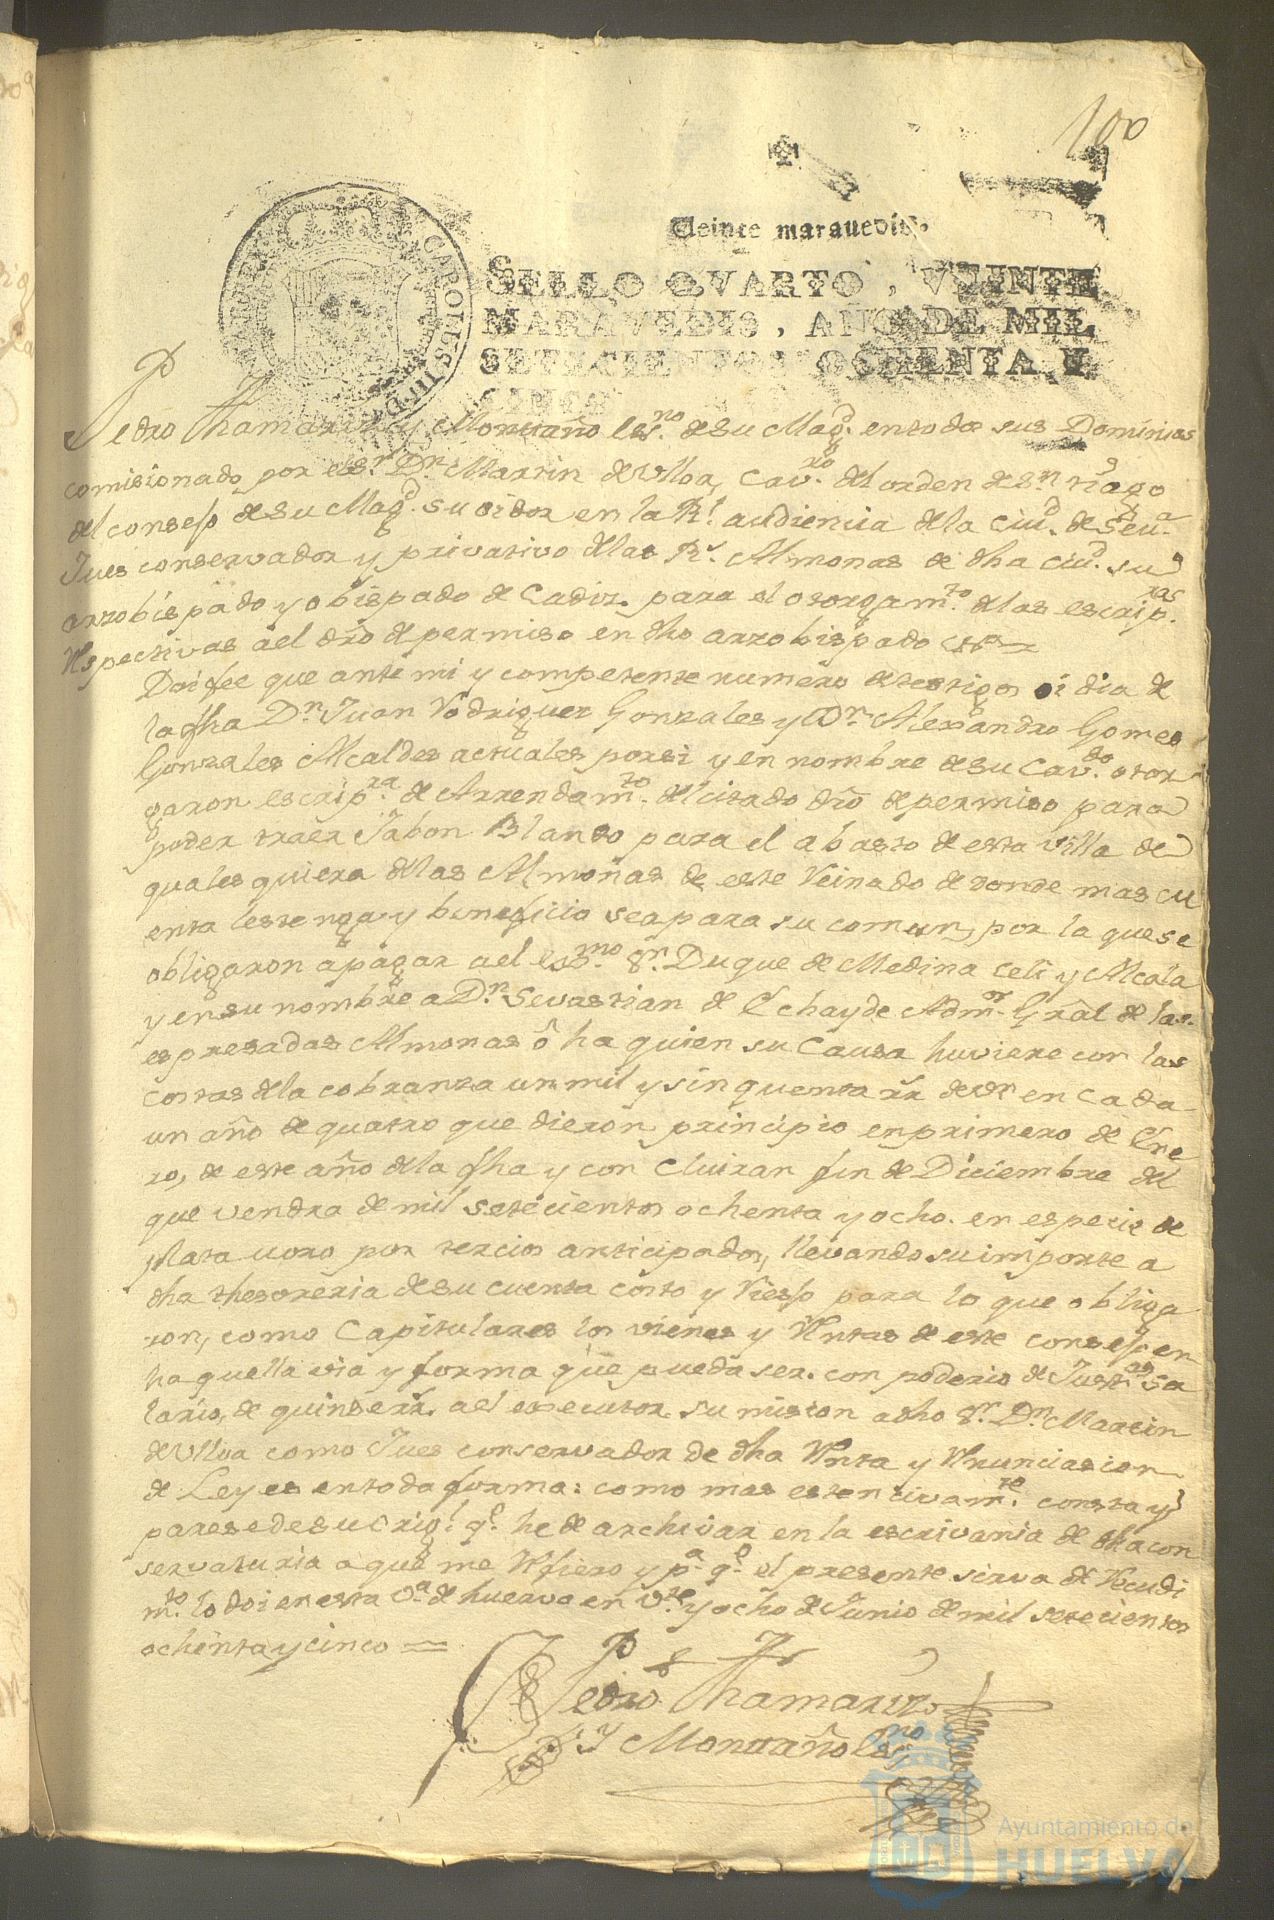 100
Veinte maravedis.
SELLO QVARTO, VEINTE
MARAVEDIS, AÑO DE MIL
SETECIENTOS OCHENTA Y
CINCO
CAROLUS III D
Pedro Thamariz y Montaño Esno. de su Magd. en todos sus Dominios
comisionado por el Sr. Dn. Martin de Ulloa, Cavro. del orden de Sn tiago
del consejo de su Magd. su oidor en la Rl. audiencia de la Ciud. de Seva.
Jues conservador y privativo de las Rs. Almonas de dha Ciud. su
arzobispado y obispado de Cadiz. para el otorgamto. de las escripras.
respectivas a el dro de permiso en dho arzobispado
Doi fee que ante mi y competente numero de testigos oi dia de
la fha Dn. Juan Rodriguez Gonzales y Dn. Alexandro Gomes
Gonzales Alcaldes actuales por si y en nombre de su Cavdo. otor
garon escripra. de Arrendamto. del citado dro de permiso para
poder traer Jabon Blando para el abasto de esta villa de
quales quiera de las Almonas de este Reinado de donde mas cu
enta les tenga y beneficio sea para su comun, por la que se
obligaron a pagar a el exmo. Sr. Duque de Medina Celi y Alcala
y en su nombre a Dn. Sevastian de Echayde Admor. Gral de las
espresadas Almonas ô ha quien su Causa huviere con las
costas de la cobranza un mil y sinquenta rr. de vn en Cada
un año de quatro que dieron principio en primero de Ene
ro, de este año de la fha y con cluiran fin de Diciembre del
que vendra de mil setecientos ochenta y ocho. en especie de
plata u oro por tercios anticipados, llevando su importe a
dha thesoreria de su cuenta costo y riesgo para lo que obliga
ron, como Capitulares los vienes y rentas de este consejo en
ha quella via y forma que pueda ser. con poderio de Justas sa
lario, de quinse rr. a el executor su mision a dho Sr. Dn. Martin
de Ulloa como Jues conservador de dha renta y renunciasion
de Leyes en toda forma: como mas estensivamte. consta y
parese de su Origl. qe. he de archivar en la escrivania de dha con
servaturia a que me refiero y pa. qe. el presente sirva de recudi
mto. lo doi en esta Va. de huelva en vte. y ocho de Junio de mil setecientos
ochenta y cinco =
Pedro Thamariz
y Montaño Esno
Ayuntamiento de
HUELVA